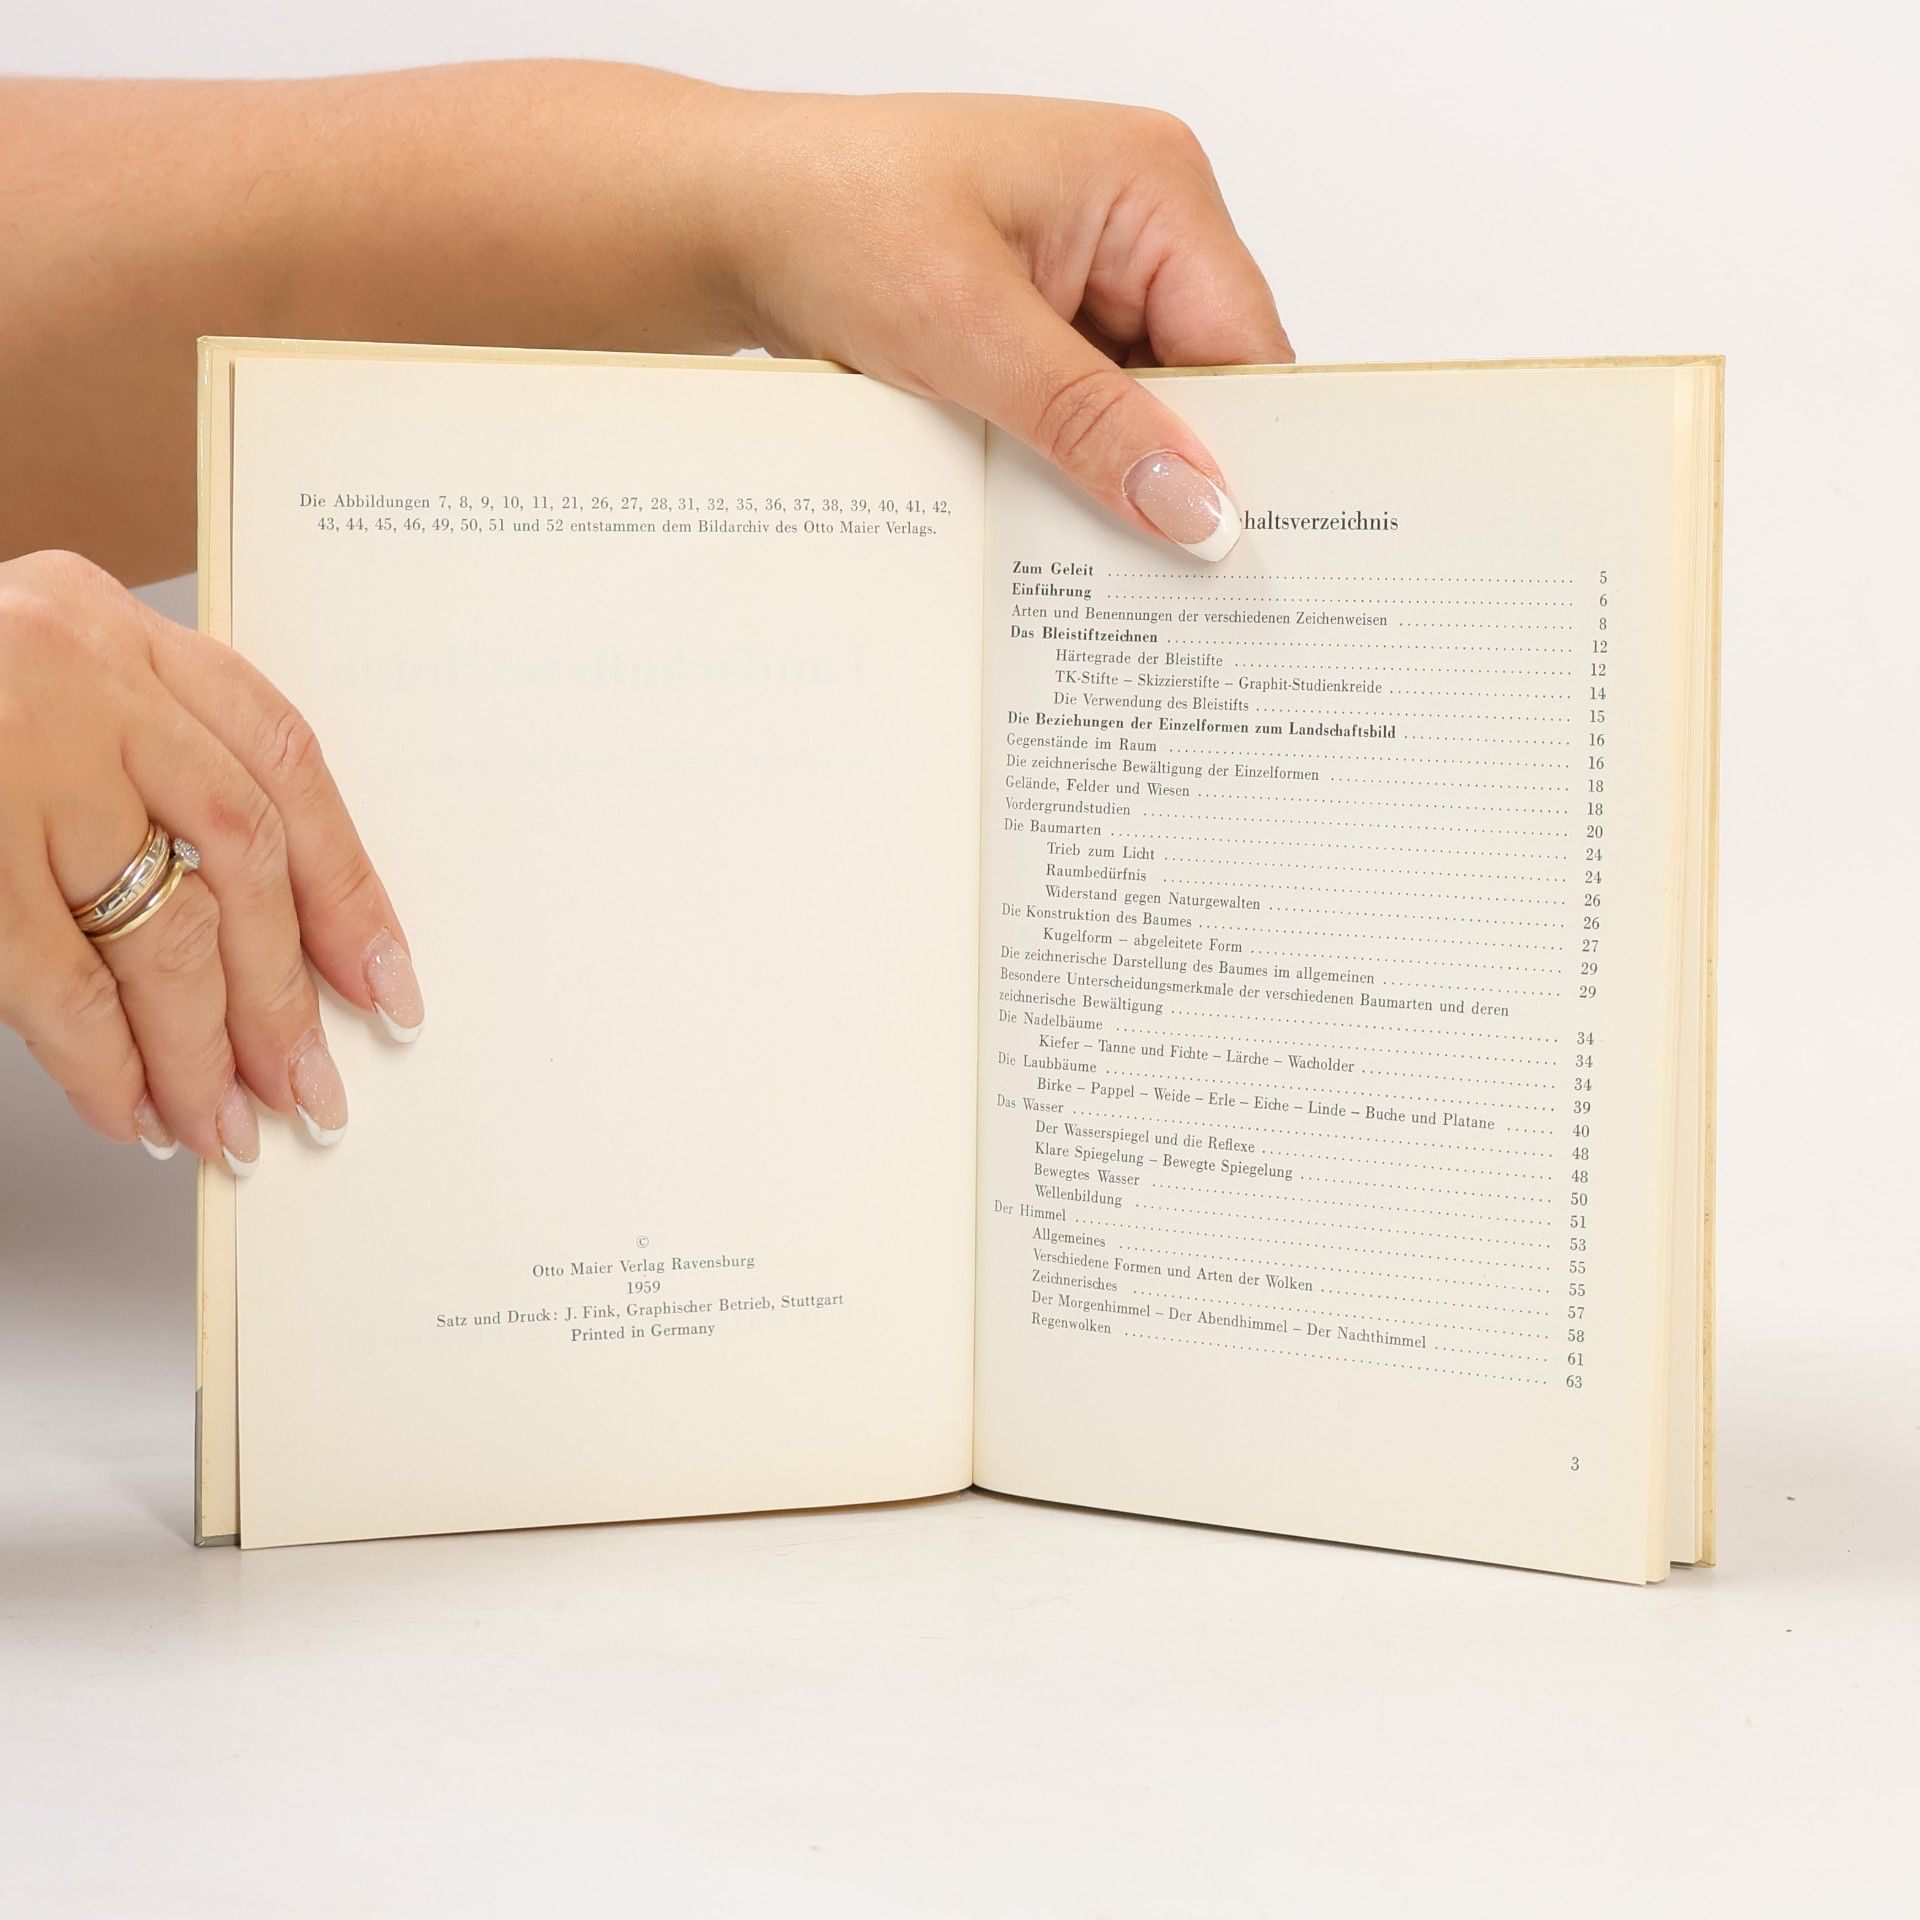 Die Abbildungen 7, 8, 9, 10, 11, 21, 26, 27, 28, 31, 32, 35, 36, 37, 38, 39, 40, 41, 42,
43, 44, 45, 46, 49, 50, 51 und 52 entstammen dem Bildarchiv des Otto Maier Verlags.
©
Otto Maier Verlag Ravensburg
1959
Satz und Druck: J. Fink, Graphischer Betrieb, Stuttgart
Printed in Germany
haltsverzeichnis
Zum Geleit ........ 5
Einführung ........ 6
Arten und Benennungen der verschiedenen Zeichenweisen ........ 8
Das Bleistiftzeichnen ........ 12
Härtegrade der Bleistifte ........ 12
TK-Stifte – Skizzierstifte – Graphit-Studienkreide ........ 14
Die Verwendung des Bleistifts ........ 15
Die Beziehungen der Einzelformen zum Landschaftsbild ........ 16
Gegenstände im Raum ........ 16
Die zeichnerische Bewältigung der Einzelformen ........ 18
Gelände, Felder und Wiesen ........ 18
Vordergrundstudien ........ 20
Die Baumarten ........ 24
Trieb zum Licht ........ 24
Raumbedürfnis ........ 26
Widerstand gegen Naturgewalten ........ 26
Die Konstruktion des Baumes ........ 27
Kugelform – abgeleitete Form ........ 29
Die zeichnerische Darstellung des Baumes im allgemeinen ........ 29
Besondere Unterscheidungsmerkmale der verschiedenen Baumarten und deren
zeichnerische Bewältigung ........ 34
Die Nadelbäume ........ 34
Kiefer – Tanne und Fichte – Lärche – Wacholder ........ 34
Die Laubbäume ........ 39
Birke – Pappel – Weide – Erle – Eiche – Linde – Buche und Platane ...... 40
Das Wasser ........ 48
Der Wasserspiegel und die Reflexe ........ 48
Klare Spiegelung – Bewegte Spiegelung ........ 50
Bewegtes Wasser ........ 51
Wellenbildung ........ 53
Der Himmel ........ 55
Allgemeines ........ 55
Verschiedene Formen und Arten der Wolken ........ 57
Zeichnerisches ........ 58
Der Morgenhimmel – Der Abendhimmel – Der Nachthimmel ........ 61
Regenwolken ........ 63
3